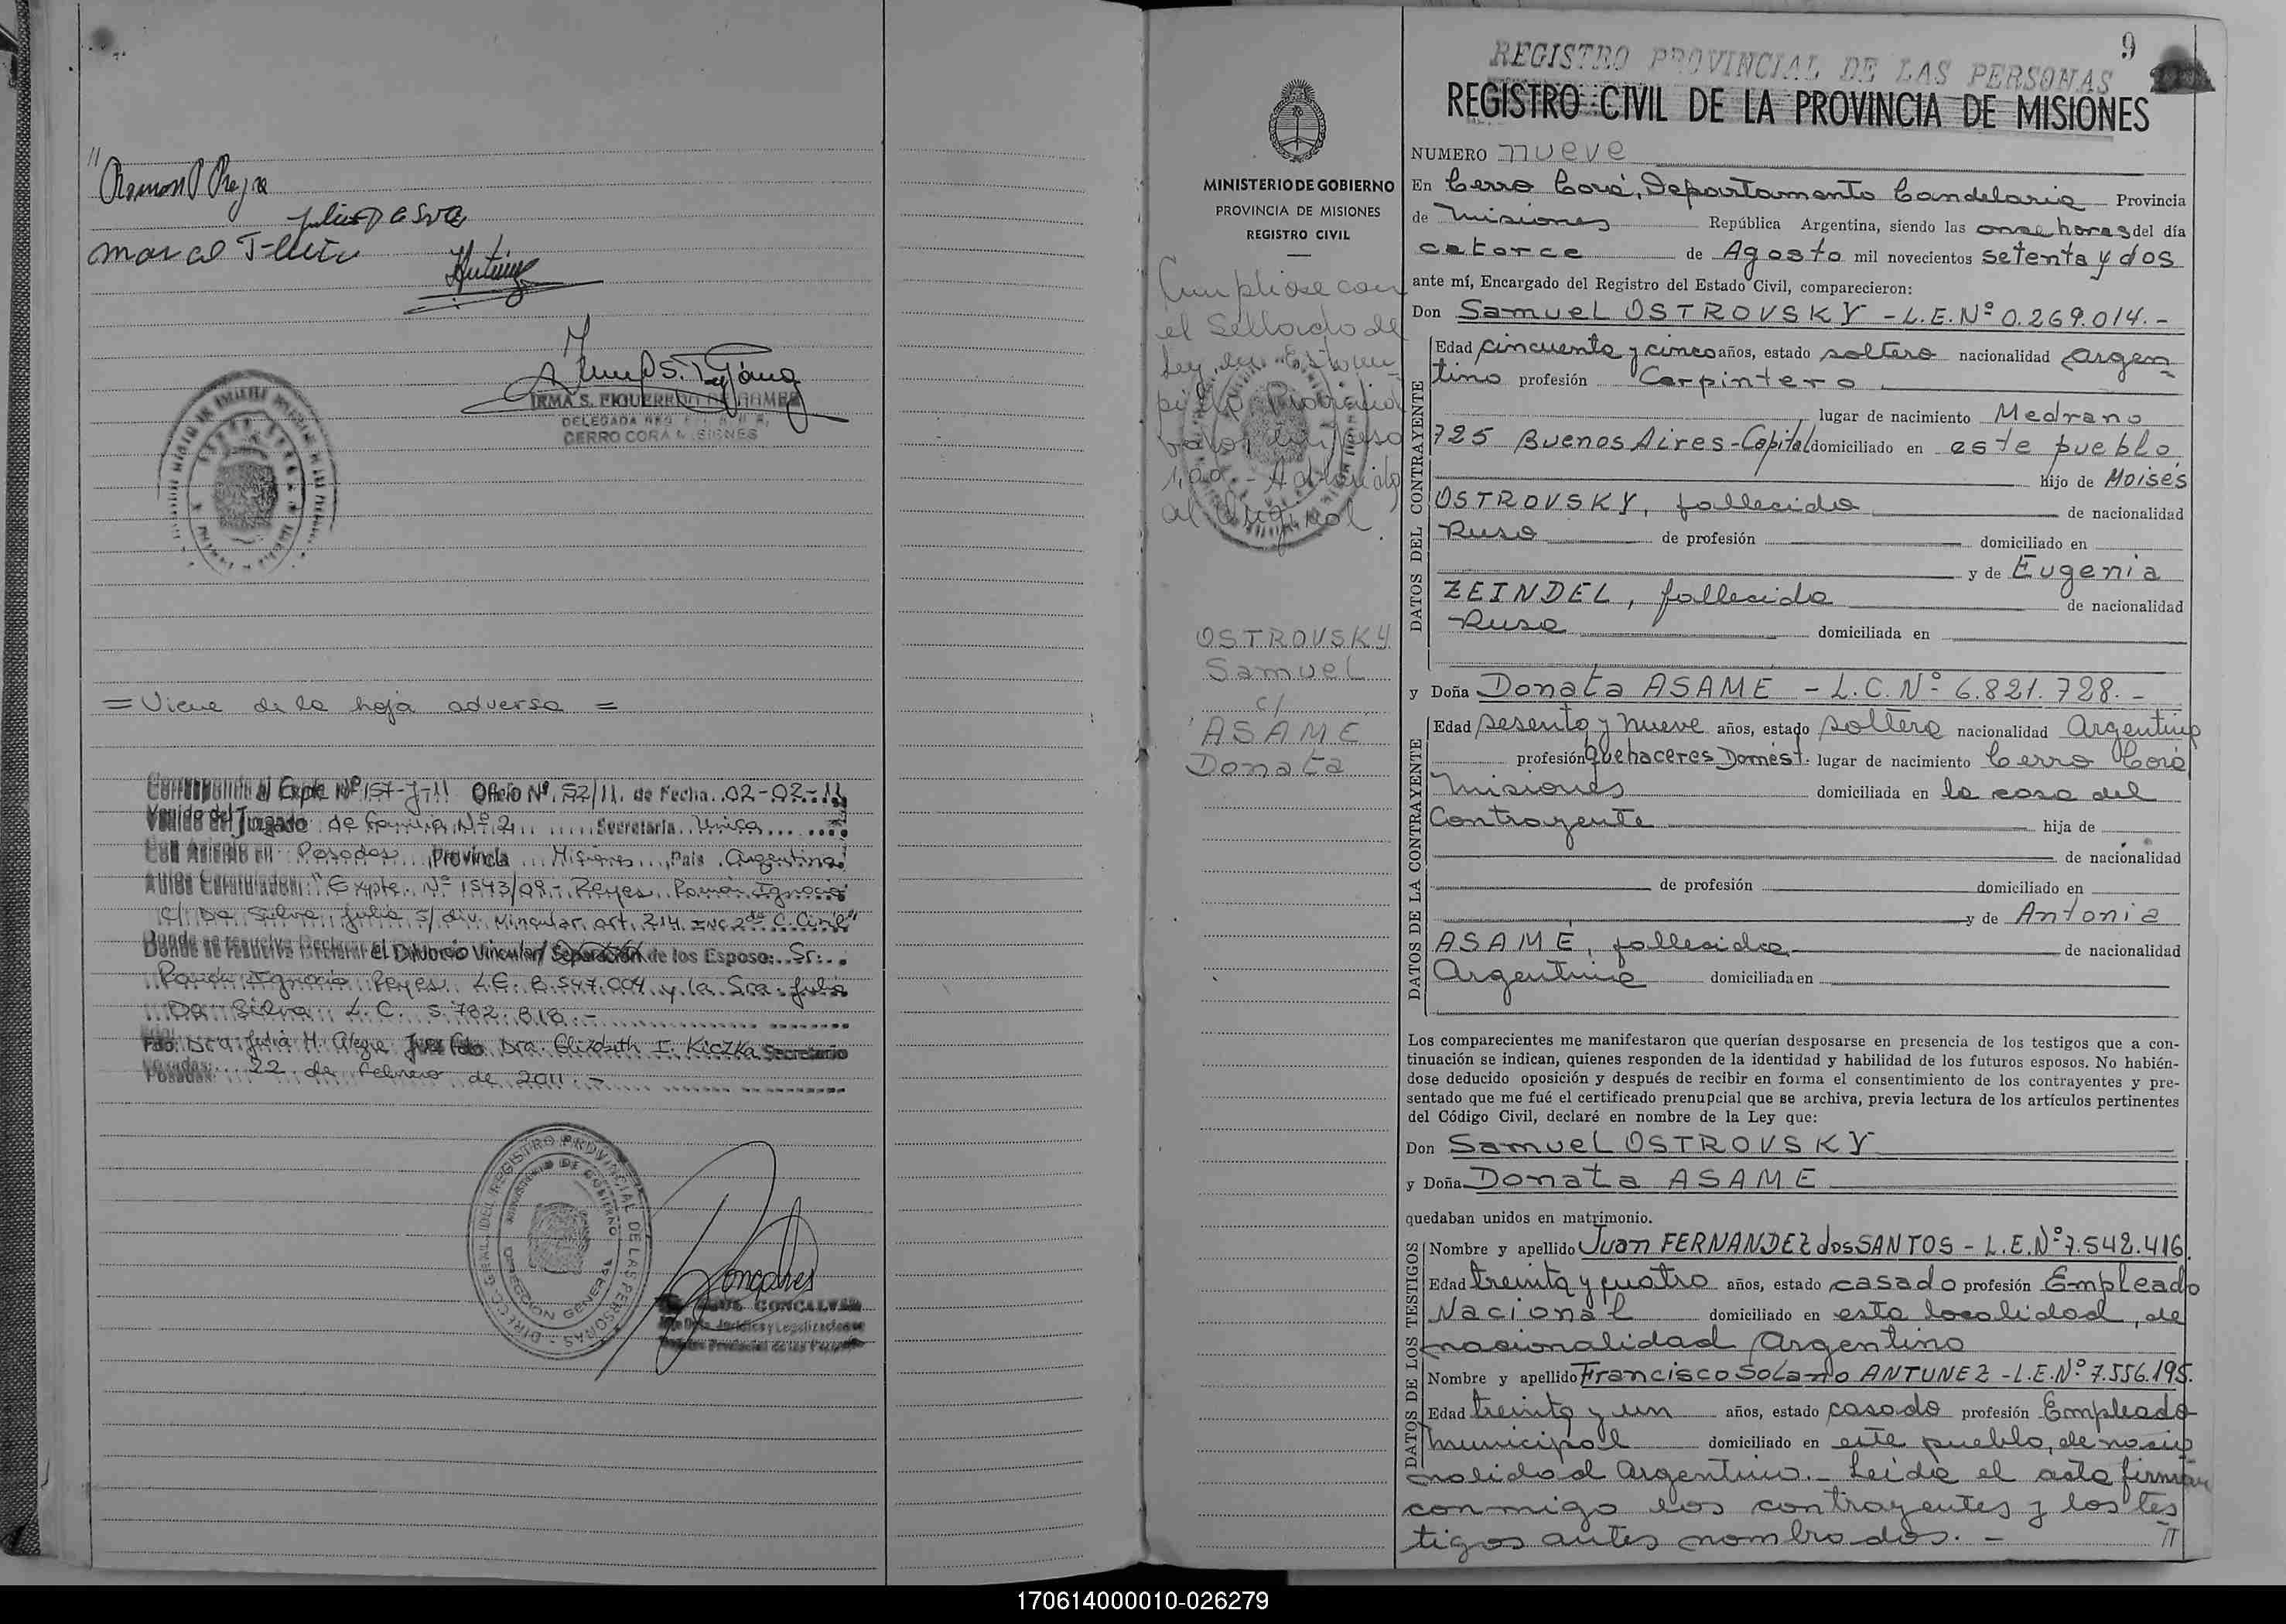 //
Ramon
Julia Da Silva
= Viene de la hoja adversa =
IRMA S. FIGUEREDO DE GOMEZ
DELEGADA REG.
CERRO CORA MISIONES
Corresponde al Expte Nº 157-J-11 Oficio Nº. 52/11. de Fecha. 02-02-11
Venido del Juzgado de Familia Nº 2 Secretaría Unica
Con Asiento en Posadas, Provincia Misiones, País Argentina
Autos Caratulados: "Expte. Nº 1543/09.- Reyes, Ramón Ignacio
c/ Da Silva, Julia s/ div. Vincular, art. 214 inc 2do C. Civil"
Donde se resuelve Declarar el Divorcio Vincular/ Separación de los Esposo: Sr.
Ramón Ignacio Reyes L.E. 8.547.004 y la Sra. Julia
Da Silva L.C. 5.782.818.-
Fdo: Dra. Julia H. Alegre Juez Fdo Dra. Elizabeth I. Kiczka Secretario
Posadas: 22 de Febrero de 2011.-
DIRECC. GRAL. DEL REGISTRO PROVINCIAL DE LAS PERSONAS
MINISTERIO DE GOBIERNO
DIRECCION GENERAL
Goncalves
GONCALVES
Jurídica y Legalizaciones
Registro Provincial de las Personas
9
REGISTRO PROVINCIAL DE LAS PERSONAS
REGISTRO CIVIL DE LA PROVINCIA DE MISIONES
MINISTERIO DE GOBIERNO
PROVINCIA DE MISIONES
REGISTRO CIVIL
Cumpliose con
el Sellado de
Ley, en Estam-
pilla Provincial
valor
1,00.- Adherido
al Original
OSTROVSKY
Samuel
c/
ASAME
Donata
NUMERO nueve
En Cerro Corá, Departamento Candelaria Provincia
de Misiones República Argentina, siendo las once horas del día
catorce de Agosto mil novecientos setenta y dos
ante mí, Encargado del Registro del Estado Civil, comparecieron:
Don Samuel OSTROVSKY - L.E.Nº 0.269.014.-
DATOS DEL CONTRAYENTE
Edad cincuenta y cinco años, estado soltero nacionalidad Argen-
tino profesión Carpintero
lugar de nacimiento Medrano
725 Buenos Aires-Capital domiciliado en este pueblo
hijo de Moisés
OSTROVSKY, fallecido de nacionalidad
Ruso de profesión domiciliado en
y de Eugenia
ZEINDEL, fallecida de nacionalidad
Rusa domiciliada en
y Doña Donata ASAME - L.C.Nº 6.821.728.-
DATOS DE LA CONTRAYENTE
Edad sesenta y nueve años, estado soltera nacionalidad Argentina
profesión Quehaceres Domést. lugar de nacimiento Cerro Corá
Misiones domiciliada en la casa del
Contrayente hija de
de nacionalidad
de profesión domiciliado en
y de Antonia
ASAMÉ, fallecida de nacionalidad
Argentina domiciliada en
Los comparecientes me manifestaron que querían desposarse en presencia de los testigos que a con-
tinuación se indican, quienes responden de la identidad y habilidad de los futuros esposos. No habién-
dose deducido oposición y después de recibir en forma el consentimiento de los contrayentes y pre-
sentado que me fué el certificado prenupcial que se archiva, previa lectura de los artículos pertinentes
del Código Civil, declaré en nombre de la Ley que:
Don Samuel OSTROVSKY
y Doña Donata ASAME
quedaban unidos en matrimonio.
DATOS DE LOS TESTIGOS
Nombre y apellido Juan FERNANDEZ dos SANTOS - L.E.Nº 7.542.416.
Edad treinta y cuatro años, estado casado profesión Empleado
Nacional domiciliado en esta localidad, de
nacionalidad Argentino
Nombre y apellido Francisco Solano ANTUNEZ - L.E.Nº 7.556.195.
Edad treinta y un años, estado casado profesión Empleado
Municipal domiciliado en este pueblo, de nacio
nalidad Argentino.- Leída el acta firman
conmigo los contrayentes y los tes
tigos antes nombrados.- //
170614000010-026279